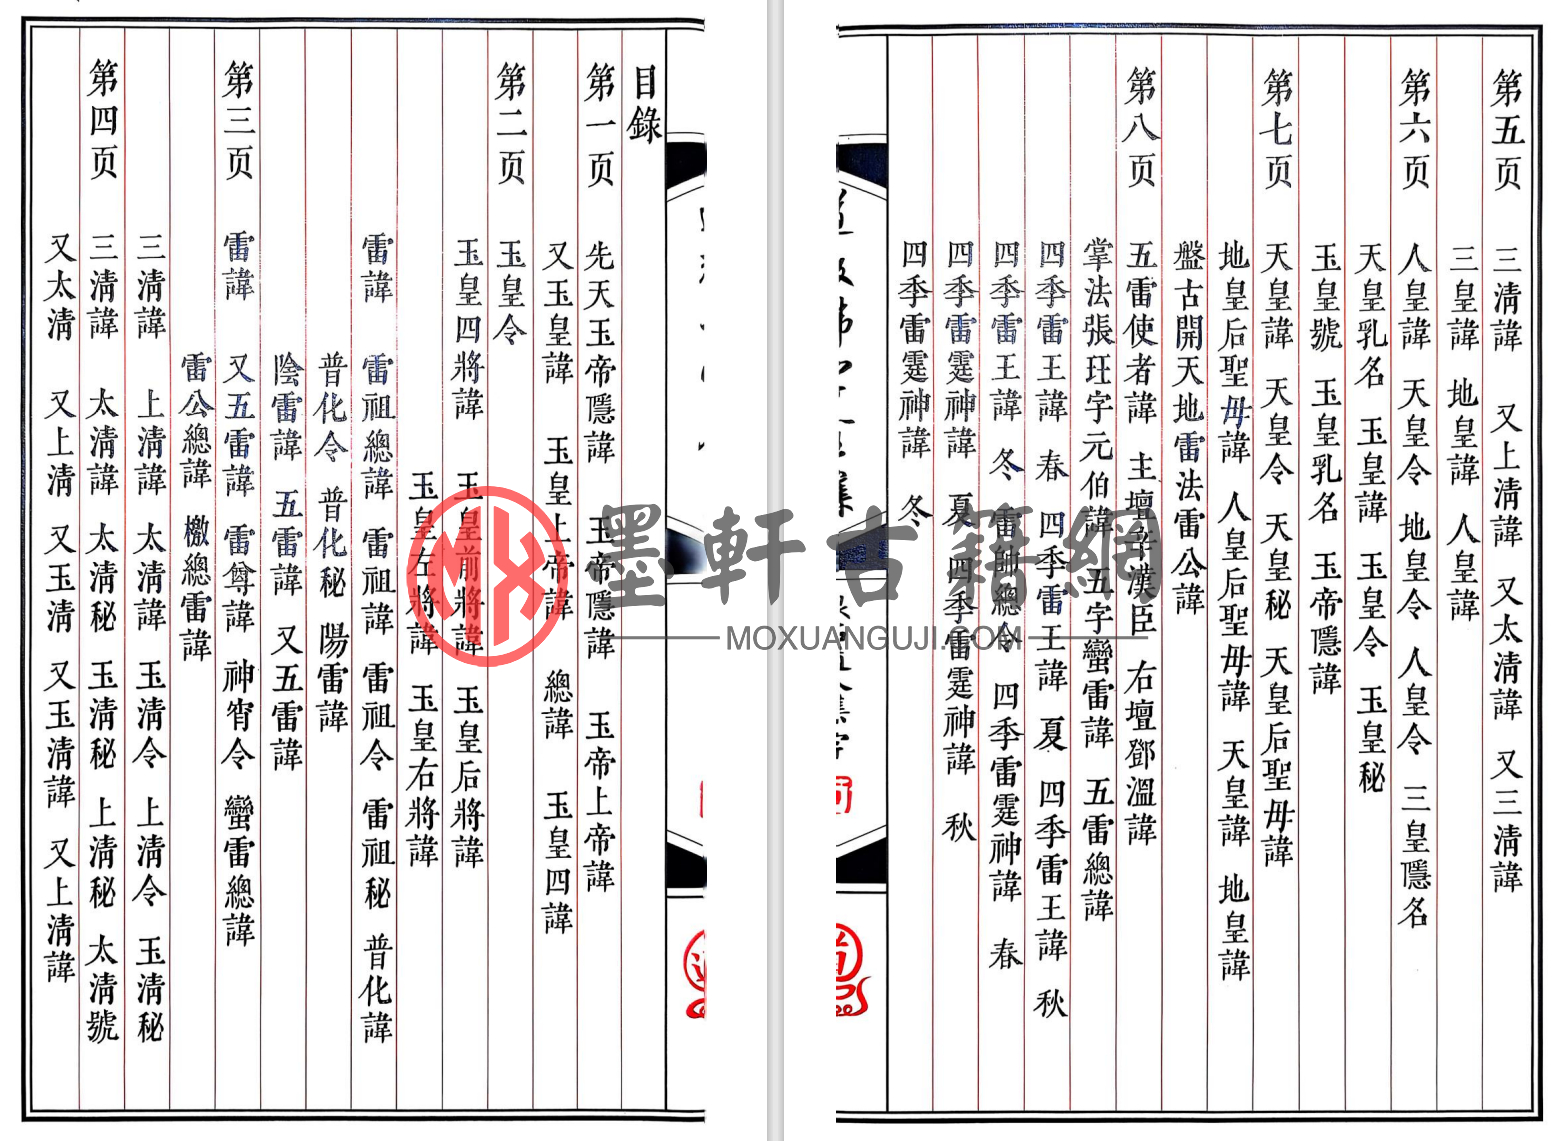 目錄
第一页 先天玉帝隱諱 玉帝隱諱 玉帝上帝諱
又玉皇諱 玉皇上帝諱 總諱 玉皇四諱
第二页 玉皇令
玉皇四將諱 玉皇前將諱 玉皇后將諱
玉皇左將諱 玉皇右將諱
雷諱 雷祖總諱 雷祖諱 雷祖令 雷祖秘 普化諱
普化令 普化秘 陽雷諱
陰雷諱 五雷諱 又五雷諱
第三页 雷諱 又五雷諱 雷尊諱 神宵令 蠻雷總諱
雷公總諱 檄總雷諱
三清諱 上清諱 太清諱 玉清令 上清令 玉清秘
第四页 三清諱 太清諱 太清秘 玉清秘 上清秘 太清號
又太清 又上清 又玉清 又玉清諱 又上清諱
第五页 三清諱 又上清諱 又太清諱 又三清諱
三皇諱 地皇諱 人皇諱
第六页 人皇諱 天皇令 地皇令 人皇令 三皇隱名
天皇乳名 玉皇諱 玉皇令 玉皇秘
玉皇號 玉皇乳名 玉帝隱諱
第七页 天皇諱 天皇令 天皇秘 天皇后聖毋諱
地皇后聖毋諱 人皇后聖毋諱 天皇諱 地皇諱
盤古開天地雷法雷公諱
第八页 五雷使者諱 主壇辛漢臣 右壇鄧溫諱
掌法張珏字元伯諱 五字蠻雷諱 五雷總諱
四季雷王諱 春 四季雷王諱 夏 四季雷王諱 秋
四季雷王諱 冬 雷帥總令 四季雷霆神諱 春
四季雷霆神諱 夏 四季雷霆神諱 秋
四季雷霆神諱 冬
墨軒古籍網
MOXUANGUJI.COM